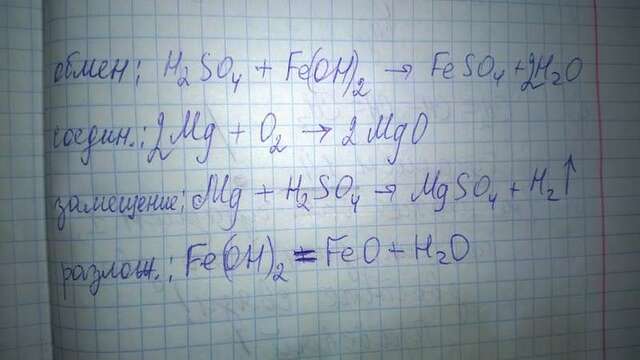 обмен; H₂SO₄ + Fe(OH)₂ → FeSO₄ + 2H₂O
соедин.; 2Mg + O₂ → 2MgO
замещение; Mg + H₂SO₄ → MgSO₄ + H₂↑
разлож.; Fe(OH)₂ = FeO + H₂O